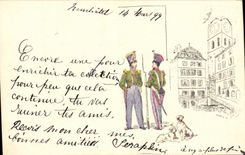 Neuchâtel 14 Mars 99
Encore une pour
enrichir ta collection
pour peu que cela
continue, tu vas
ruiner tes amis.
Reçois mon cher mes
bonnes amitiés
Seraphin